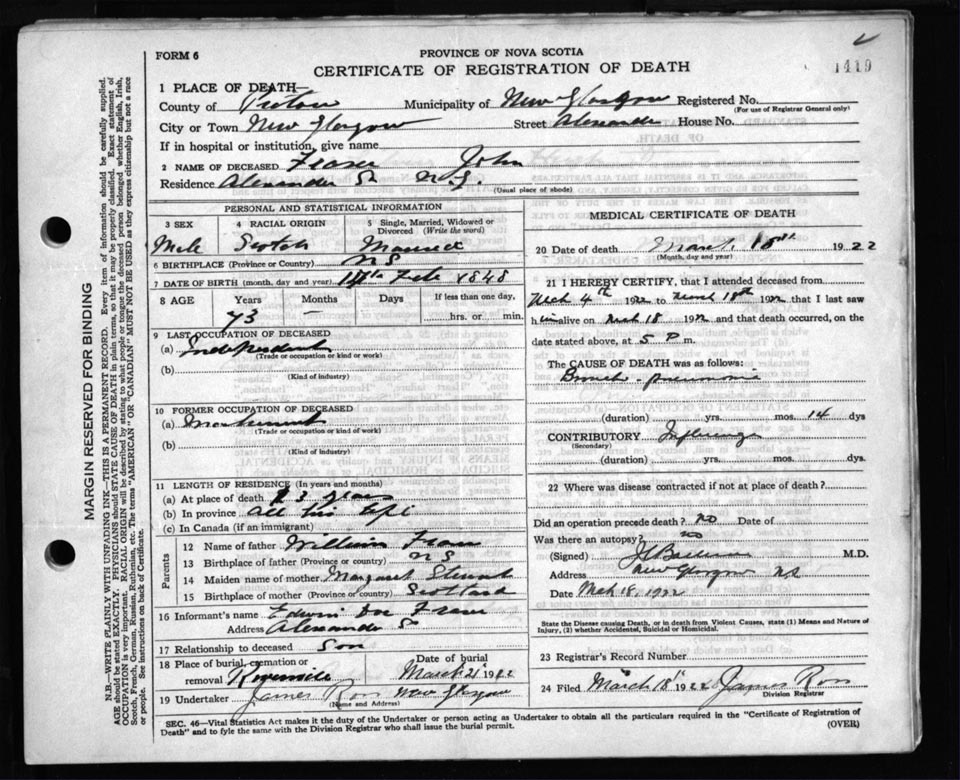 1419
FORM 6
PROVINCE OF NOVA SCOTIA
CERTIFICATE OF REGISTRATION OF DEATH
MARGIN RESERVED FOR BINDING
N.B.—WRITE PLAINLY WITH UNFADING INK—THIS IS A PERMANENT RECORD. Every item of information should be carefully supplied.
AGE should be stated EXACTLY. PHYSICIANS should STATE CAUSE OF DEATH in plain terms, so that it may be properly classified. Exact statement of
OCCUPATION is very important. RACIAL ORIGIN will be described by stating to what people or tongue the deceased person belonged whether English, Irish,
Scotch, French, German, Russian, Ruthenian, etc. The terms "AMERICAN" OR "CANADIAN" MUST NOT BE USED as they express citizenship but not a race
or people. See instructions on back of Certificate.
1 PLACE OF DEATH—
County of Pictou Municipality of New Glasgow Registered No.
(For use of Registrar General only)
City or Town New Glasgow Street Alexander House No.
If in hospital or institution, give name
2 NAME OF DECEASED Fraser John
Residence Alexander St N.S.
(Usual place of abode)
PERSONAL AND STATISTICAL INFORMATION
3 SEX 4 RACIAL ORIGIN 5 Single, Married, Widowed or
Divorced (Write the word)
Male Scotch Married
6 BIRTHPLACE (Province or Country) N S
7 DATE OF BIRTH (month, day and year) Feb 1848
8 AGE Years Months Days If less than one day,
73 — hrs. or min.
9 LAST OCCUPATION OF DECEASED
(a) Independent
(Trade or occupation or kind or work)
(b)
(Kind of industry)
10 FORMER OCCUPATION OF DECEASED
(a)
(Trade or occupation or kind of work)
(b)
(Kind of industry)
11 LENGTH OF RESIDENCE (In years and months)
(a) At place of death 3 years
(b) In province all his life
(c) In Canada (if an immigrant)
Parents
12 Name of father William Fraser
13 Birthplace of father (Province or country) N S
14 Maiden name of mother Margaret Stewart
15 Birthplace of mother (Province or country) Scotland
16 Informant's name Edwin Fraser
Address Alexander St
17 Relationship to deceased Son
18 Place of burial, cremation or Date of burial
removal Riverside March 21st 1922
19 Undertaker James Ross New Glasgow
(Name and Address)
MEDICAL CERTIFICATE OF DEATH
20 Date of death March 18th 1922
(Month, day and year)
21 I HEREBY CERTIFY, that I attended deceased from
Mch 4th 1922 to March 18th 1922 that I last saw
him alive on Mch 18 1922 and that death occurred, on the
date stated above, at 5 P m.
The CAUSE OF DEATH was as follows:
Broncho-pneumonia
(duration) yrs. mos. 14 dys
CONTRIBUTORY Influenza
(Secondary)
(duration) yrs. mos. dys.
22 Where was disease contracted if not at place of death?
Did an operation precede death? no Date of
Was there an autopsy? no
(Signed) M.D.
Address New Glasgow N.S.
Date Mch 18, 1922
State the Disease causing Death, or in death from Violent Causes, state (1) Means and Nature of
Injury, (2) whether Accidental, Suicidal or Homicidal.
23 Registrar's Record Number
24 Filed March 18th 1922 James Ross
Division Registrar
SEC. 46—Vital Statistics Act makes it the duty of the Undertaker or person acting as Undertaker to obtain all the particulars required in the "Certificate of Registration of
Death" and to fyle the same with the Division Registrar who shall issue the burial permit. (OVER)